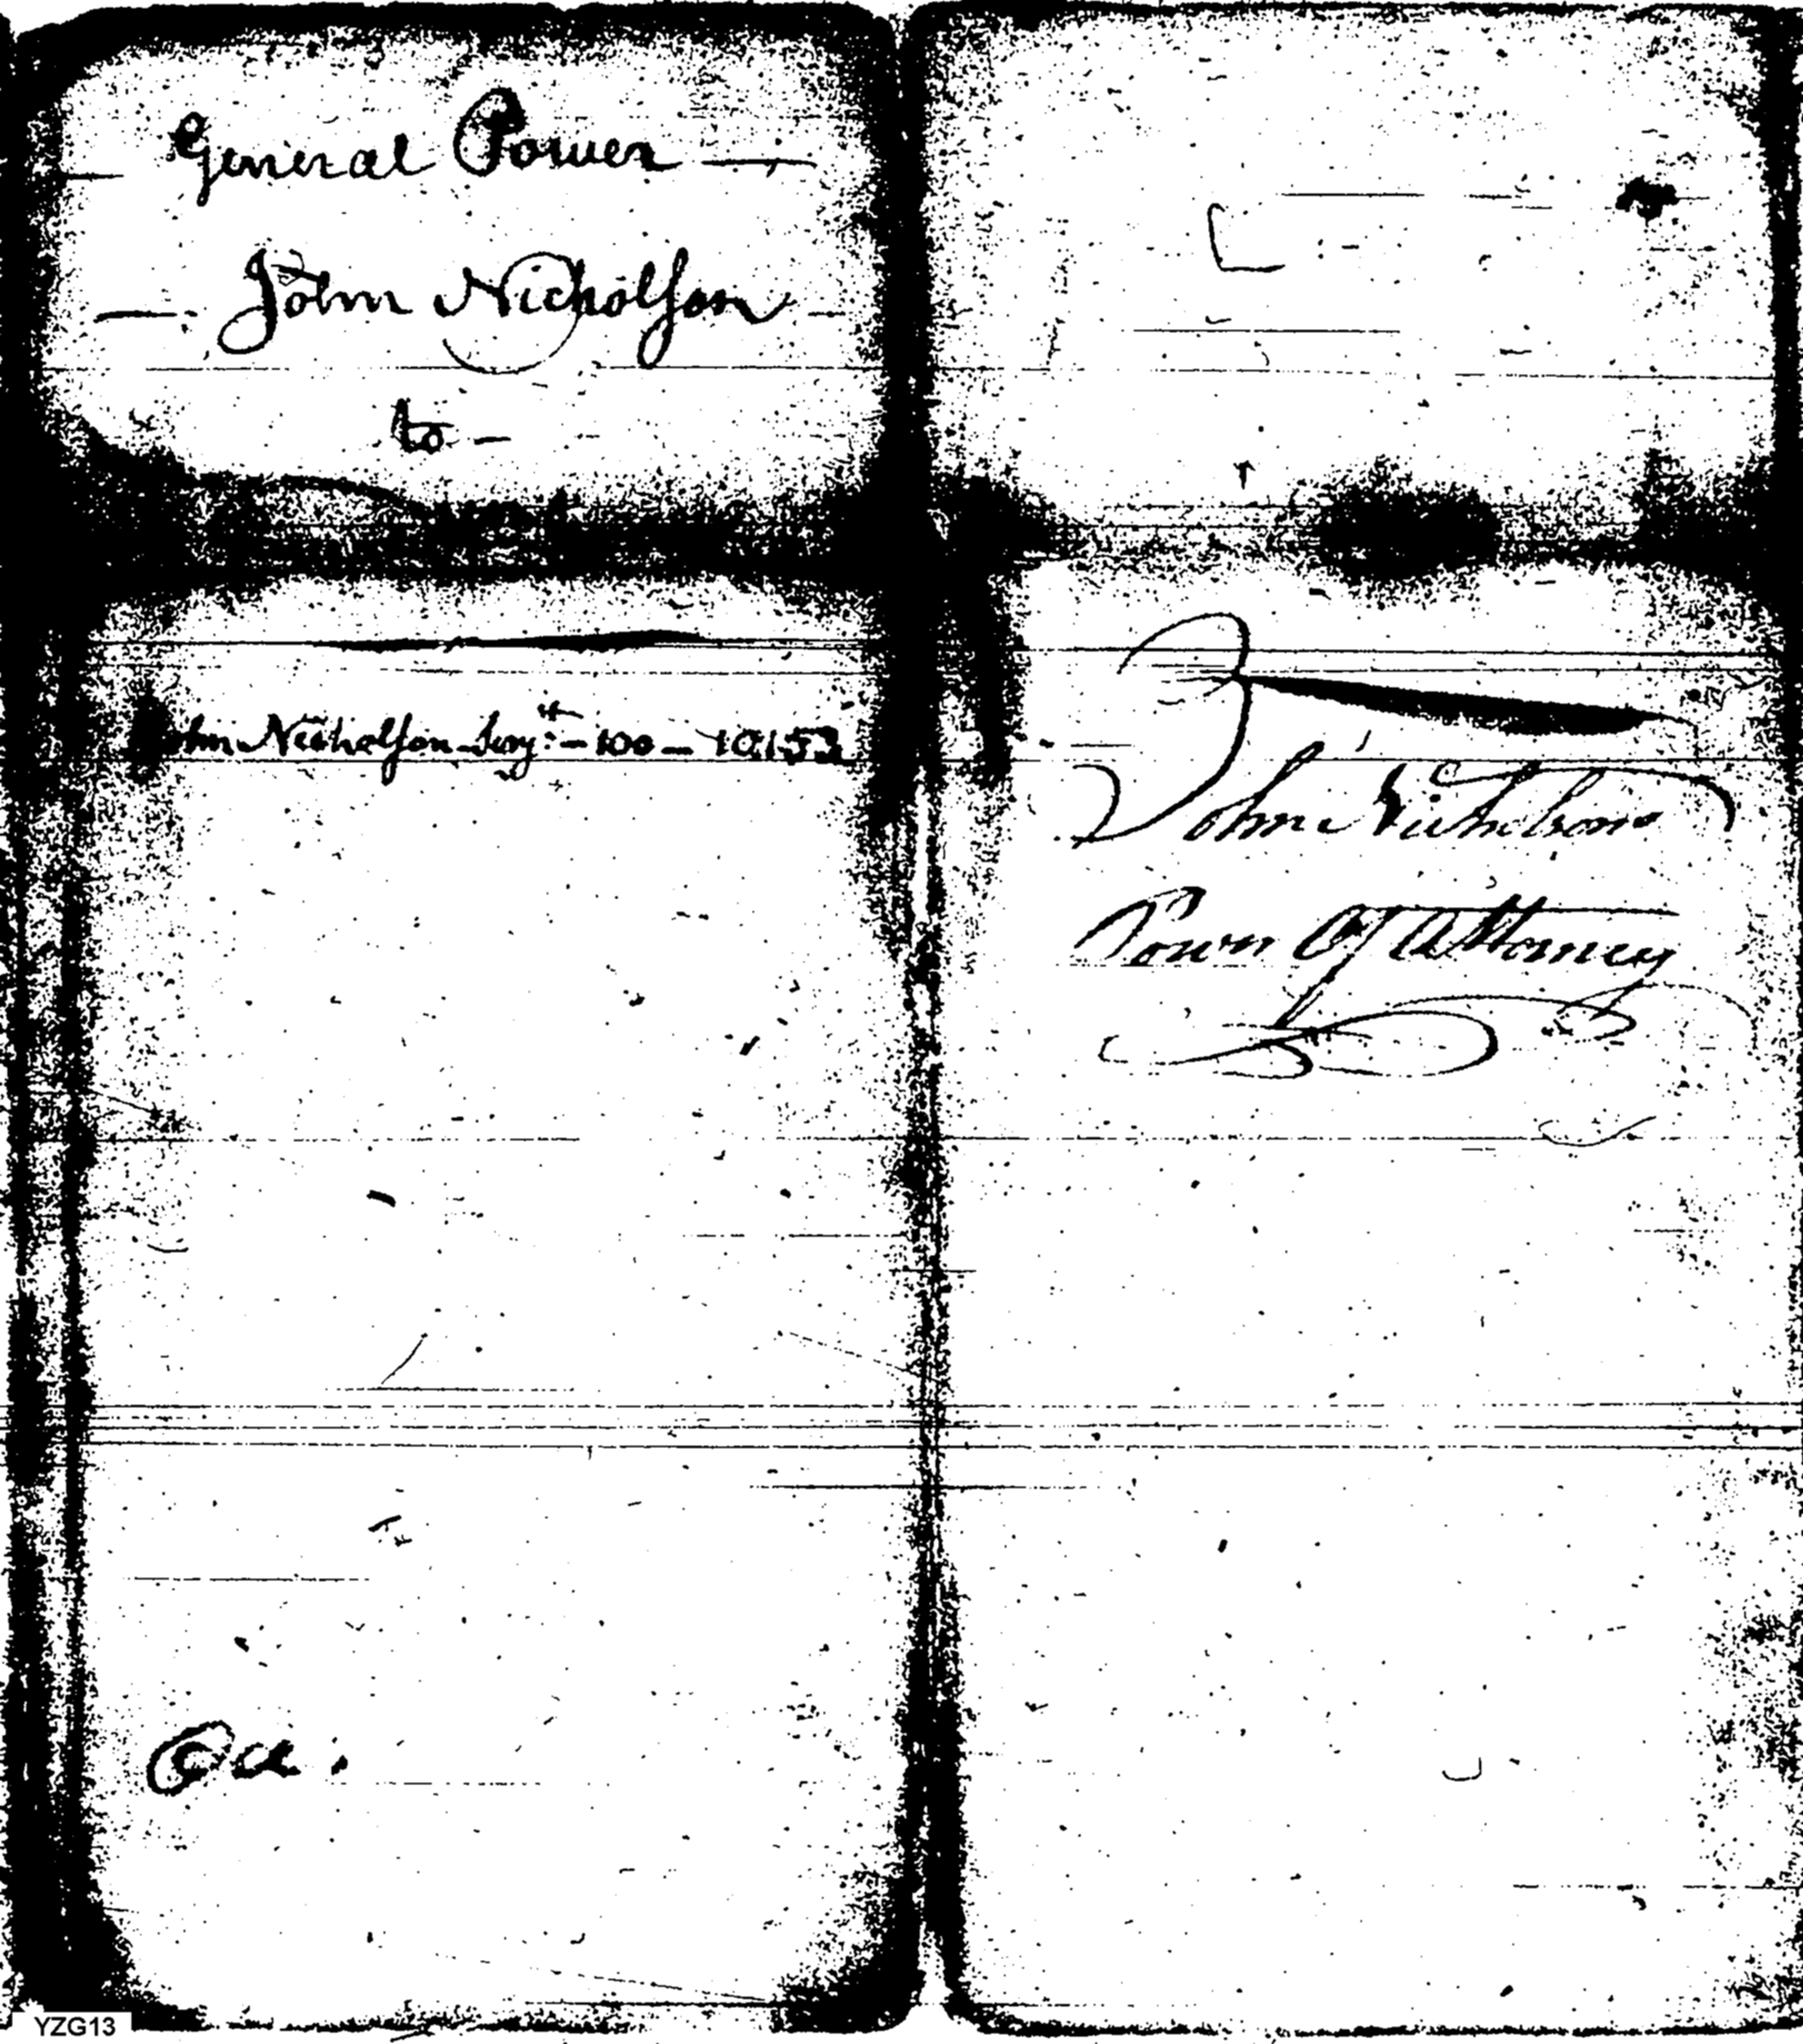 General Power
John Nicholson
to
John Nicholson Serjt - 100 - 10,153
Oa.
John Nicholson
Power Of Attorney
YZG13